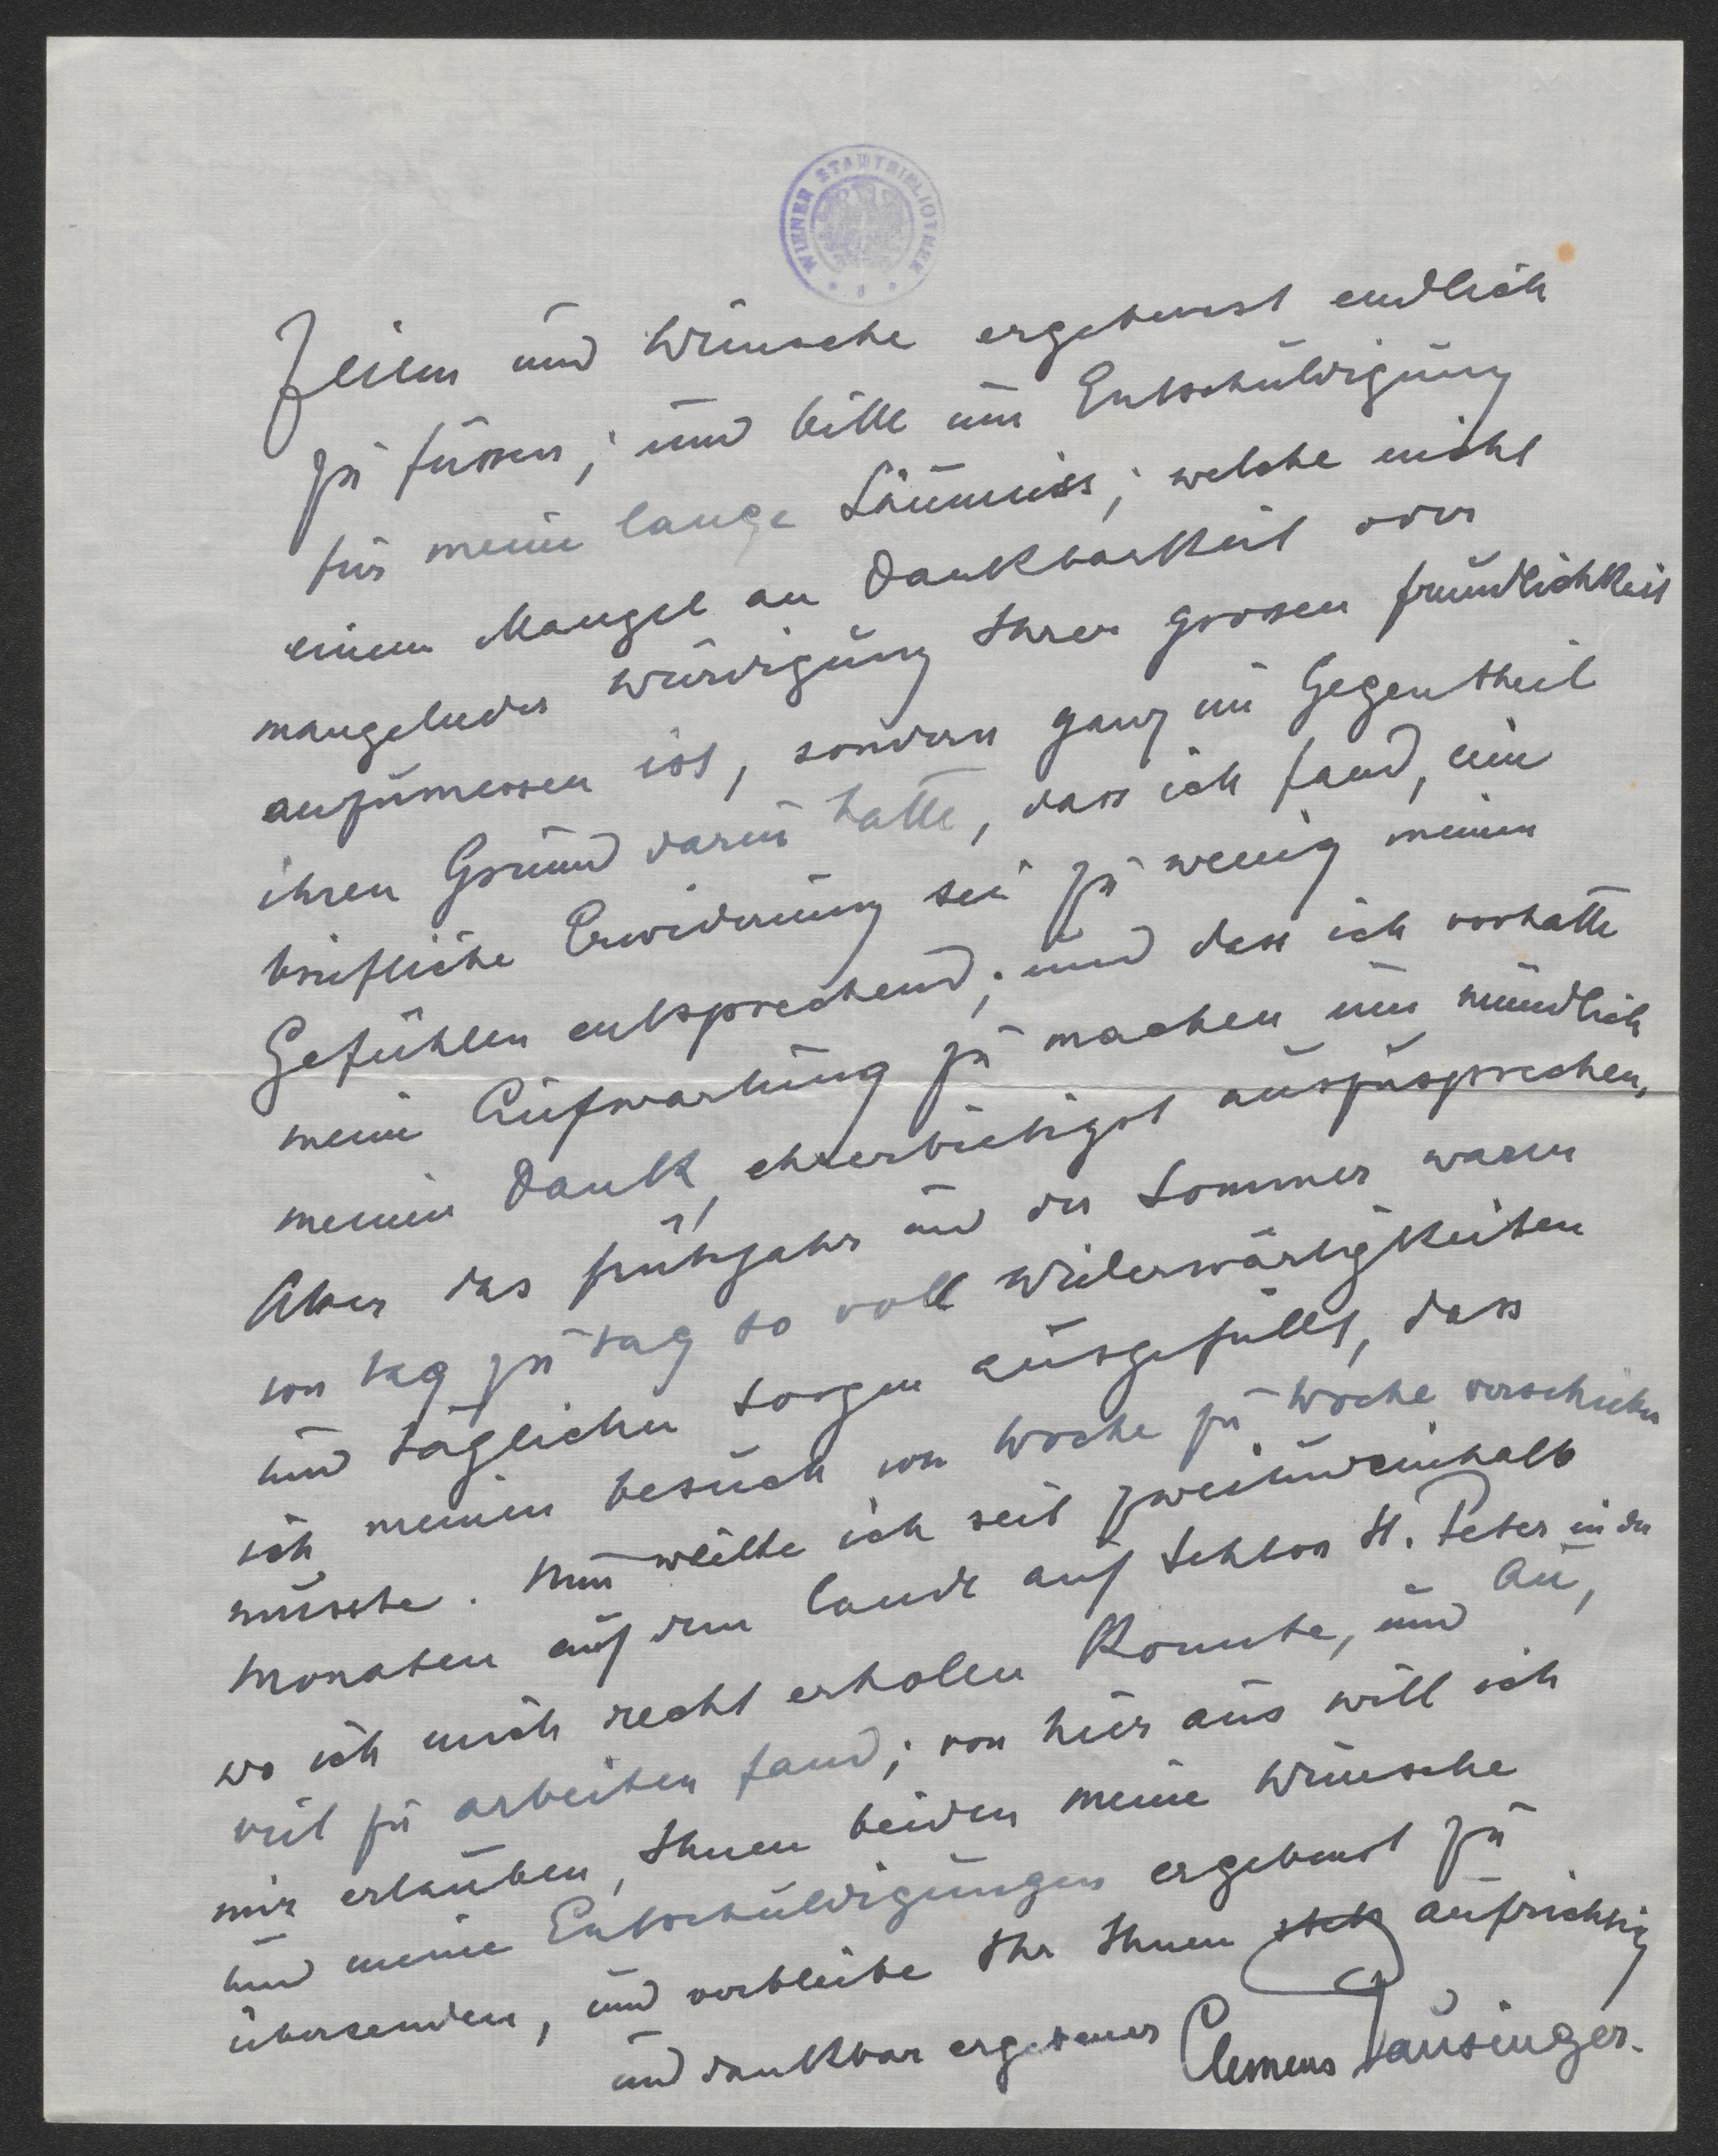 WIENER STADTBIBLIOTHEK
Zeilen und Wünsche ergebenst endlich
zu füssen; und bitte um Entschuldigung
für meine lange Säumniss; welche nicht
einem Mangel an Dankbarkeit oder
mangelnder Würdigung Ihrer grossen freundlichkeit
anzumessen ist, sondern ganz im Gegentheil
ihren Grund darin hatte, dass ich fand, eine
briefliche Erwiderung sei zu wenig meinen
Gefühlen entsprechend; und dass ich vorhatte
meine Aufwartung zu machen um mündlich
meinen Dank ehrerbietigst auszusprechen,
Aber das frühjahr und der Sommer waren
von tag zu tag so voll Widerwärtigkeiten
und täglichen Sorgen ausgefüllt, dass
ich meinen besuch von Woche zu Woche verschieben
musste. Nun weilte ich seit zweiundeinhalb
Monaten auf dem Lande auf Schloss St. Peter in der
Au,
wo ich mich recht erholen konnte, und
viel zu arbeiten fand; von hier aus will ich
mir erlauben, Ihnen beiden meine Wünsche
und meine Entschuldigungen ergebenst zu
übersenden, und verbleibe Ihr Ihnen stets aufrichtig
und dankbar ergebener Clemens Pausinger.